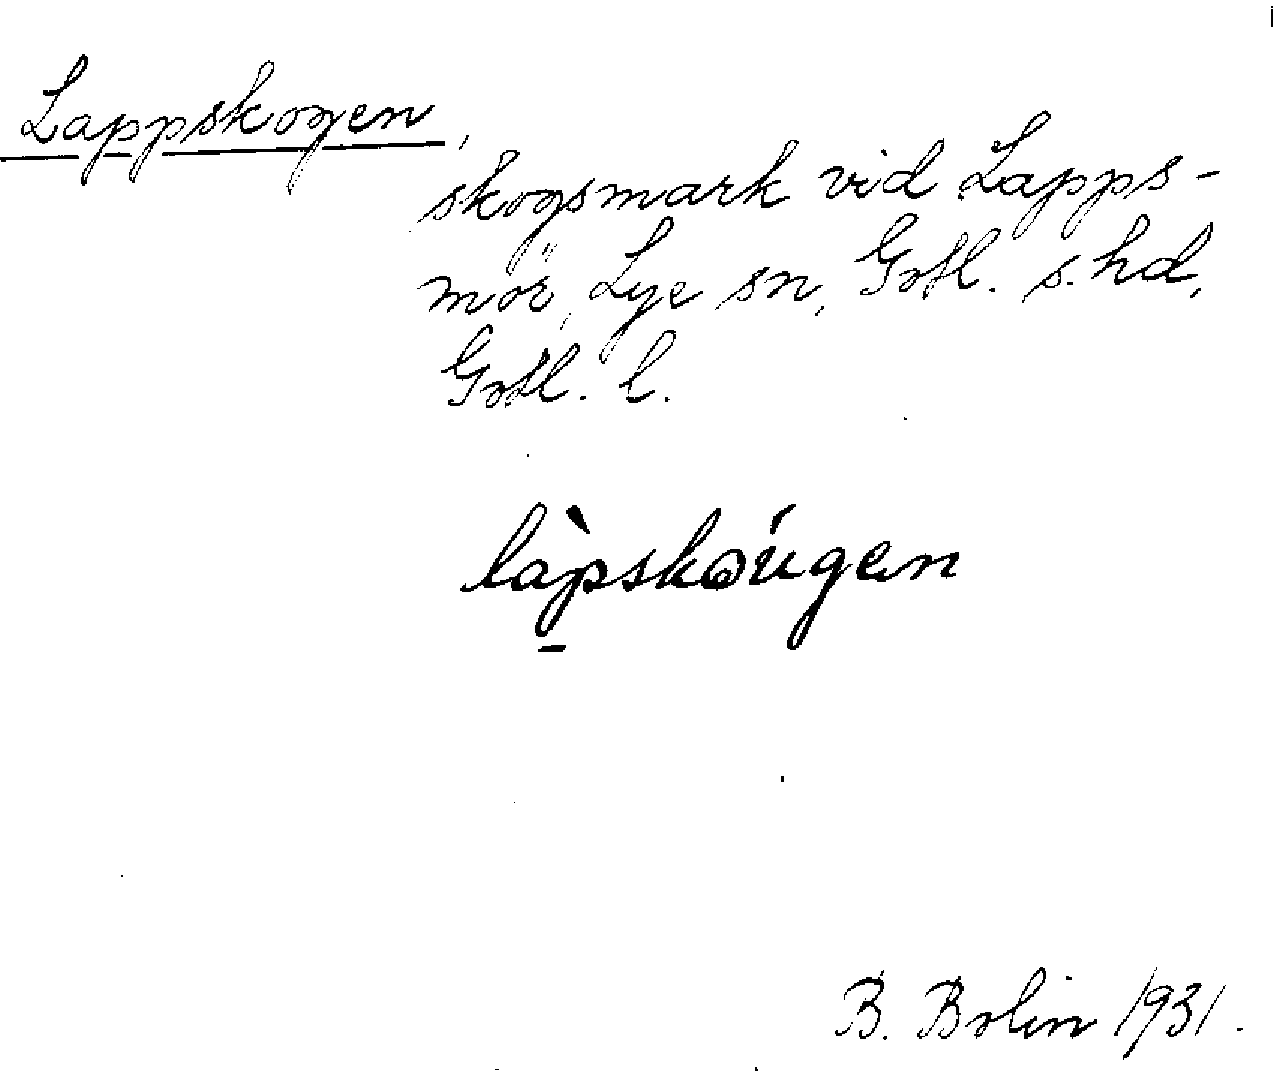 Lappskogen,
skogsmark vid Lapps-
mör, Lye sn, Gotl. s. hd,
Gotl. l.
làpskǝúgen
B. Bolin 1931.